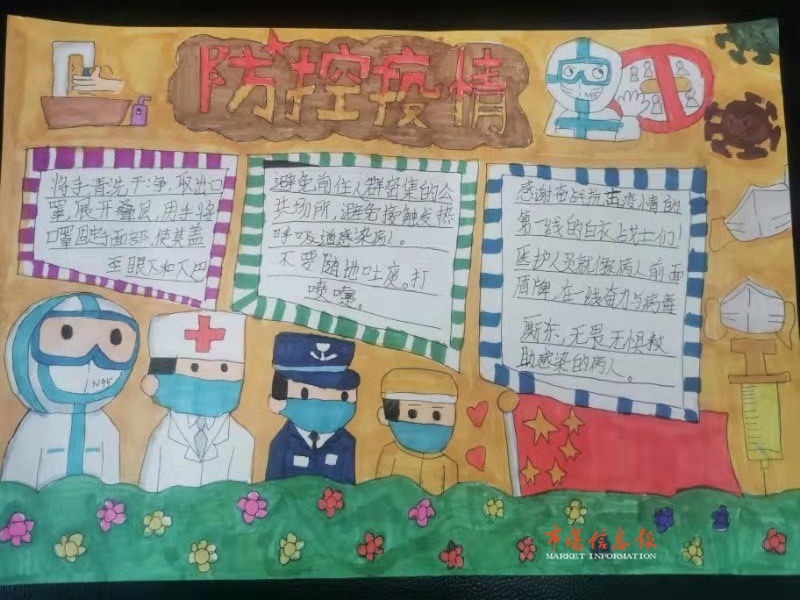 防控疫情
将手清洗干净,取出口
罩,展开叠层,用手将
口罩固定面部,使其盖
至眼下和下巴
避免前往人群密集的公
共场所,避免接触发热
呼吸道感染病人。
不要随地吐痰。打
喷嚏。
感谢奋战抗击疫情的
第一线的白衣战士们!
医护人员就像病人前面
盾牌,在一线奋力与病毒
厮杀,无畏无惧救
助感染的病人。
N95
N95
市场信息报
MARKET INFORMATION